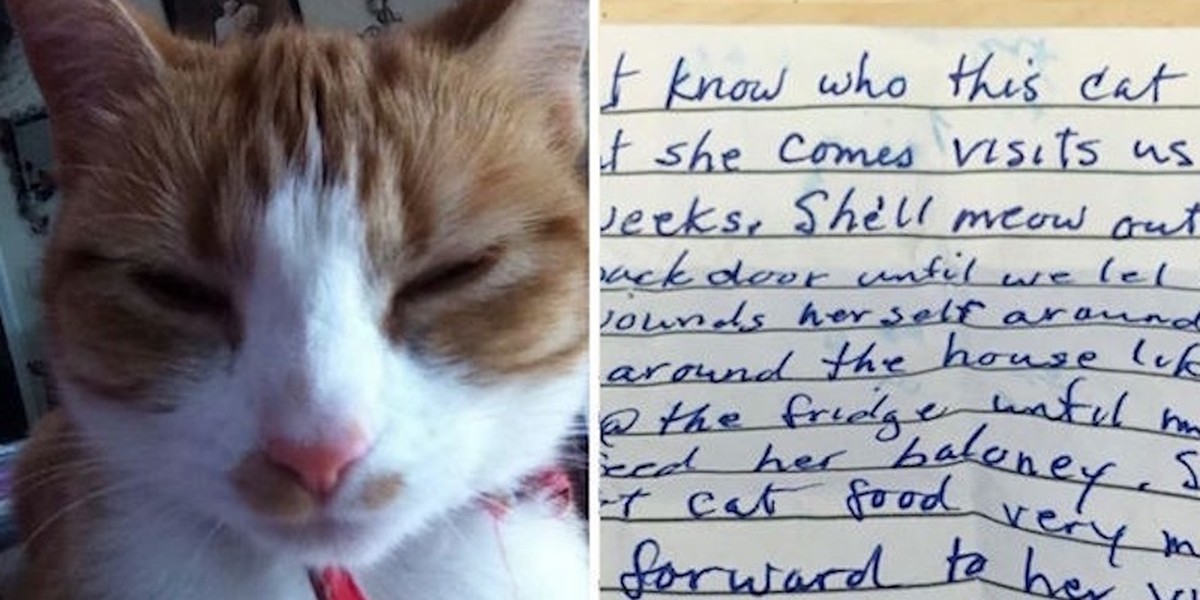 know who this cat
she comes visits us
weeks. She'll meow out
back door until we let
herself around
around the house lik
@ the fridge until m
her baloney. S
t cat food very m
forward to her